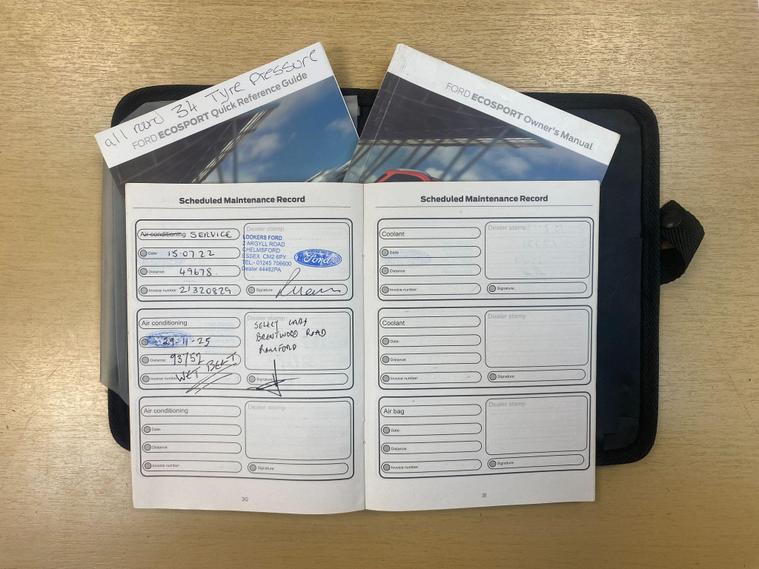 all round 34 Tyre Pressure
FORD ECOSPORT Quick Reference Guide
FORD ECOSPORT Owner's Manual
Scheduled Maintenance Record
Air conditioning SERVICE
Date 15.07.22
Distance 49678
Invoice number 21320829
Dealer stamp
LOOKERS FORD
2 ARGYLL ROAD
CHELMSFORD
ESSEX CM2 6PY
TEL:- 01245 706600
Dealer 44482PA
Ford
Signature
Air conditioning
29-11-25
Distance 93757
Invoice number WET BELT
Dealer stamp
SELECT CARS
BRENTWOOD ROAD
ROMFORD
Signature
Air conditioning
Date
Distance
Invoice number
Dealer stamp
Signature
30
Scheduled Maintenance Record
Coolant
Date
Distance
Invoice number
Dealer stamp
Signature
Coolant
Date
Distance
Invoice number
Dealer stamp
Signature
Air bag
Date
Distance
Invoice number
Dealer stamp
Signature
31